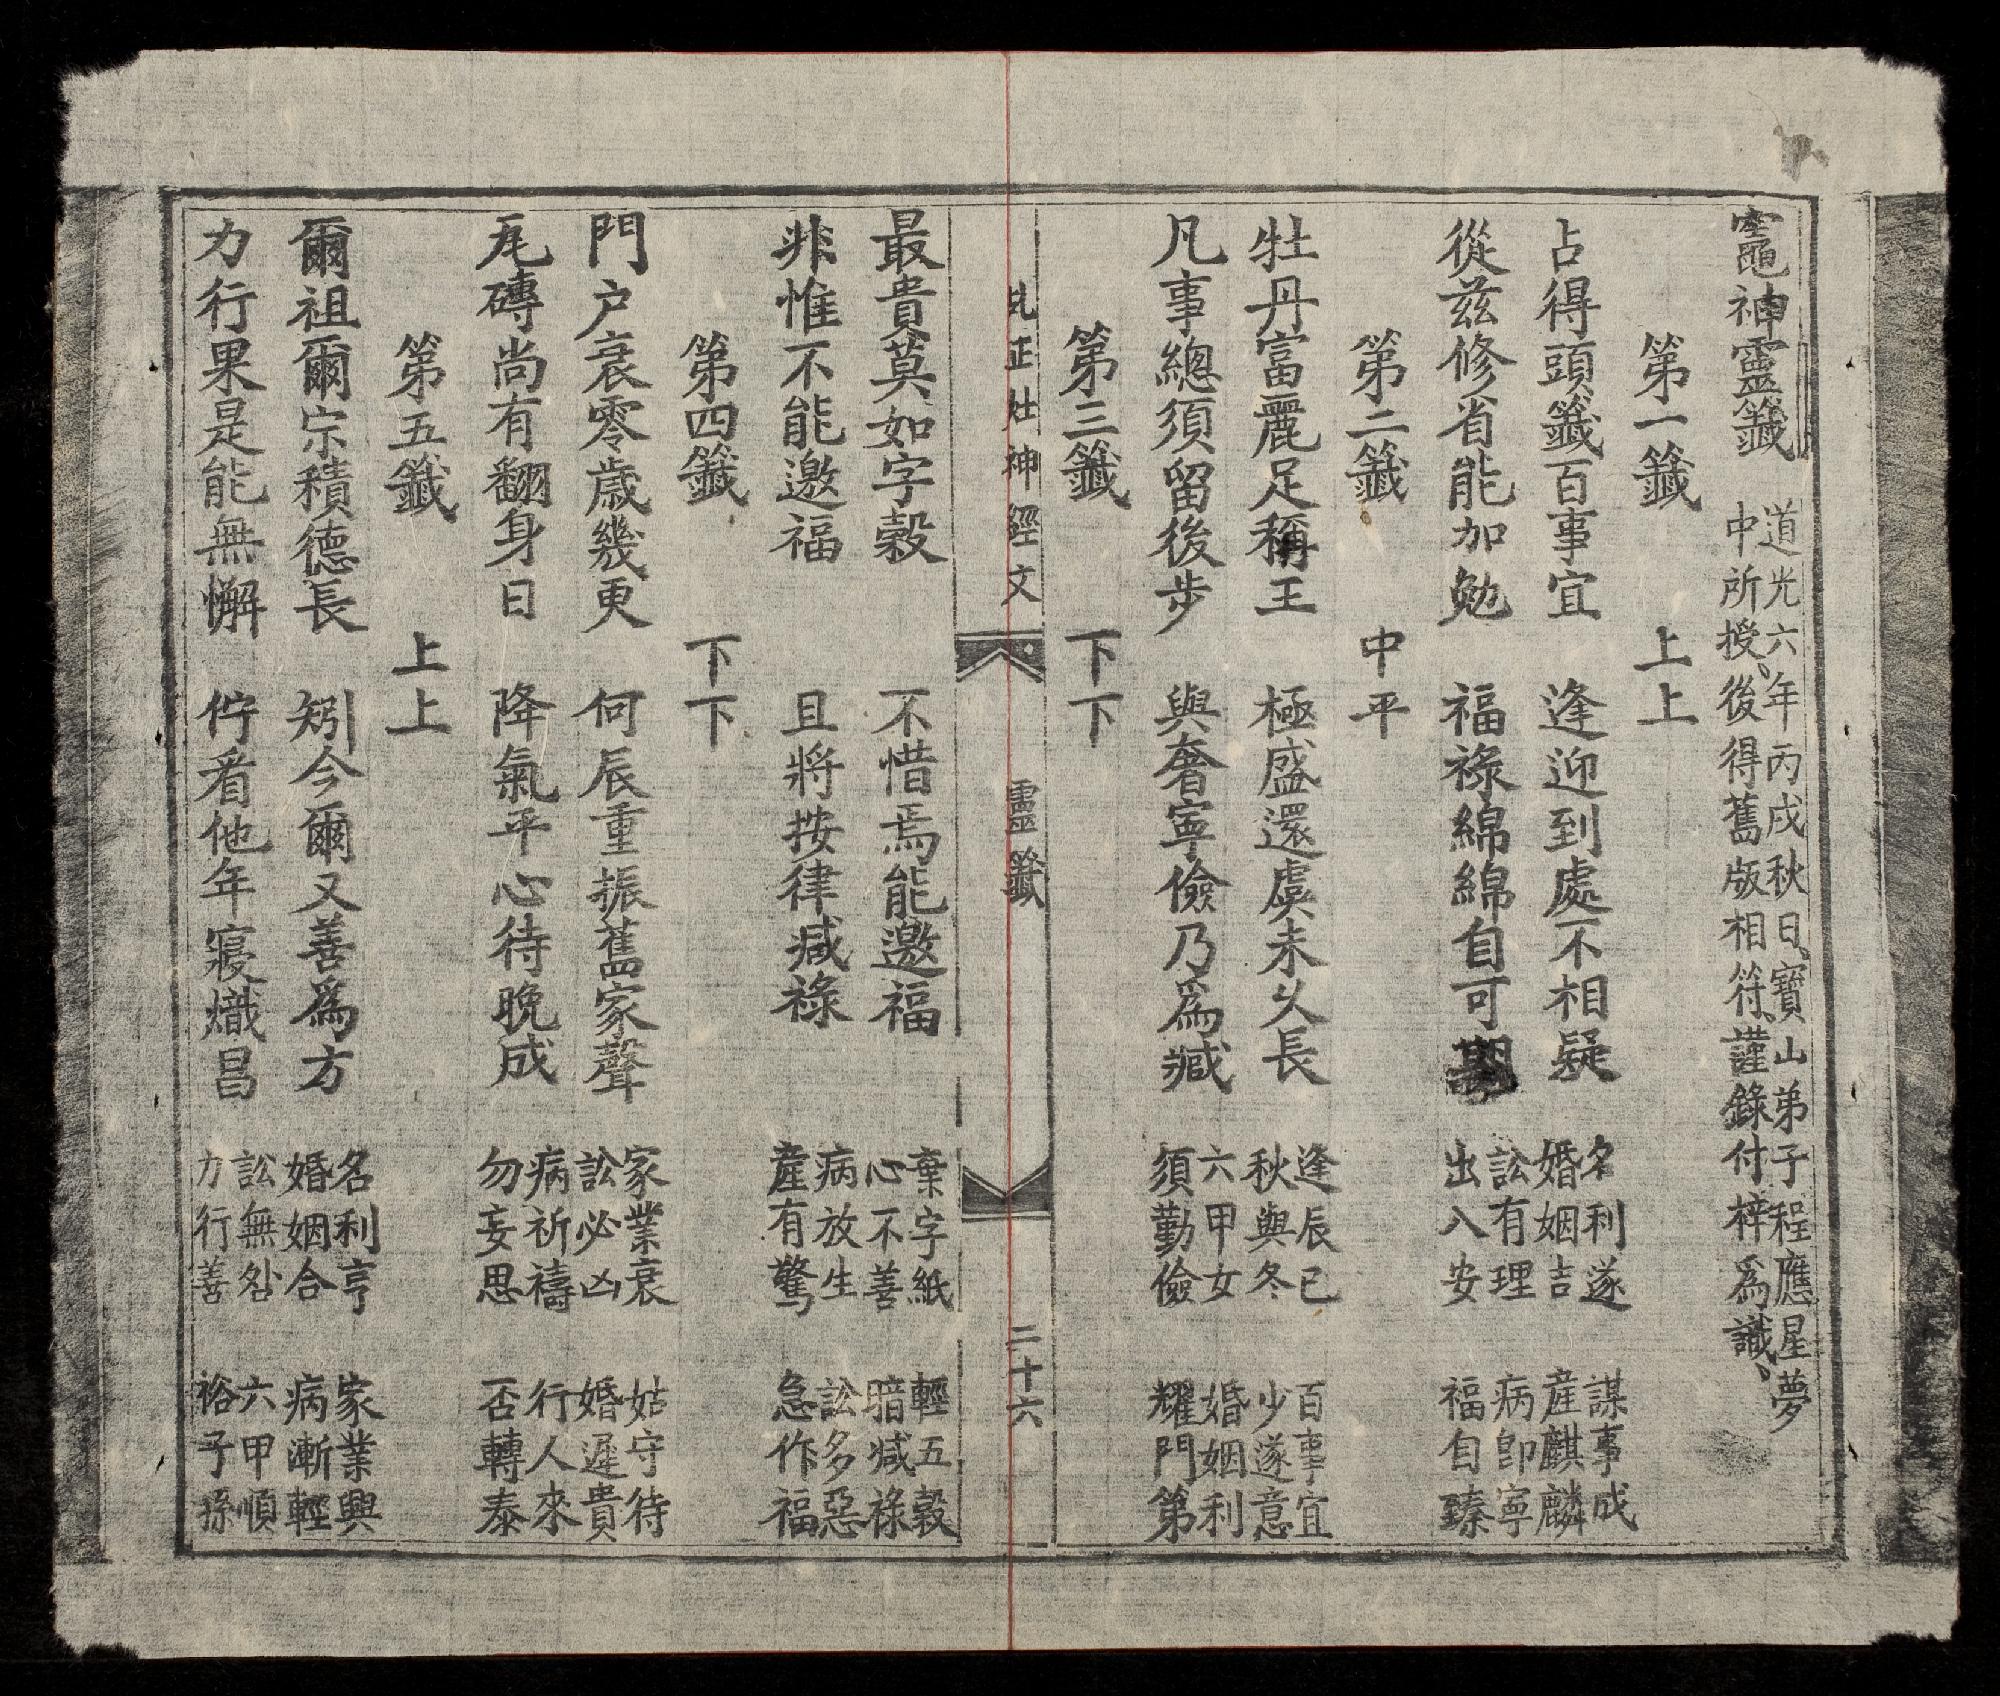 竈神靈籤
道光六年丙戌秋日、寶山弟子程應星夢
中所授、後得舊版相符、謹錄付梓爲識、
第一籤 上上
占得頭籤百事宜 逢迎到處不相疑
名利遂 謀事成
婚姻吉 產麒麟
從茲修省能加勉 福祿綿綿自可期
訟有理 病卽寧
出入安 福自臻
第二籤 中平
牡丹富麗足稱王 極盛還虞未久長
逢辰已 百事宜
秋與冬 少遂意
凡事總須留後步 與奢寧儉乃爲臧
六甲女 婚姻利
須勤儉 耀門第
第三籤 下下
乩正灶神經文 靈籤 二十六
最貴莫如字穀 不惜焉能邀福
棄字紙 輕五穀
心不善 暗减祿
非惟不能邀福 且將按律减祿
病放生 訟多惡
產有驚 急作福
第四籤 下下
門户衰零歲幾更 何辰重振舊家聲
家業衰 姑守待
訟必凶 婚遲貴
瓦磚尚有翻身日 降氣平心待晚成
病祈禱 行人來
勿妄思 否轉泰
第五籤 上上
爾祖爾宗積德長 矧今爾又善爲方
名利亨 家業興
婚姻合 病漸輕
力行果是能無懈 佇看他年寖熾昌
訟無 六甲順
力行善 裕子孫